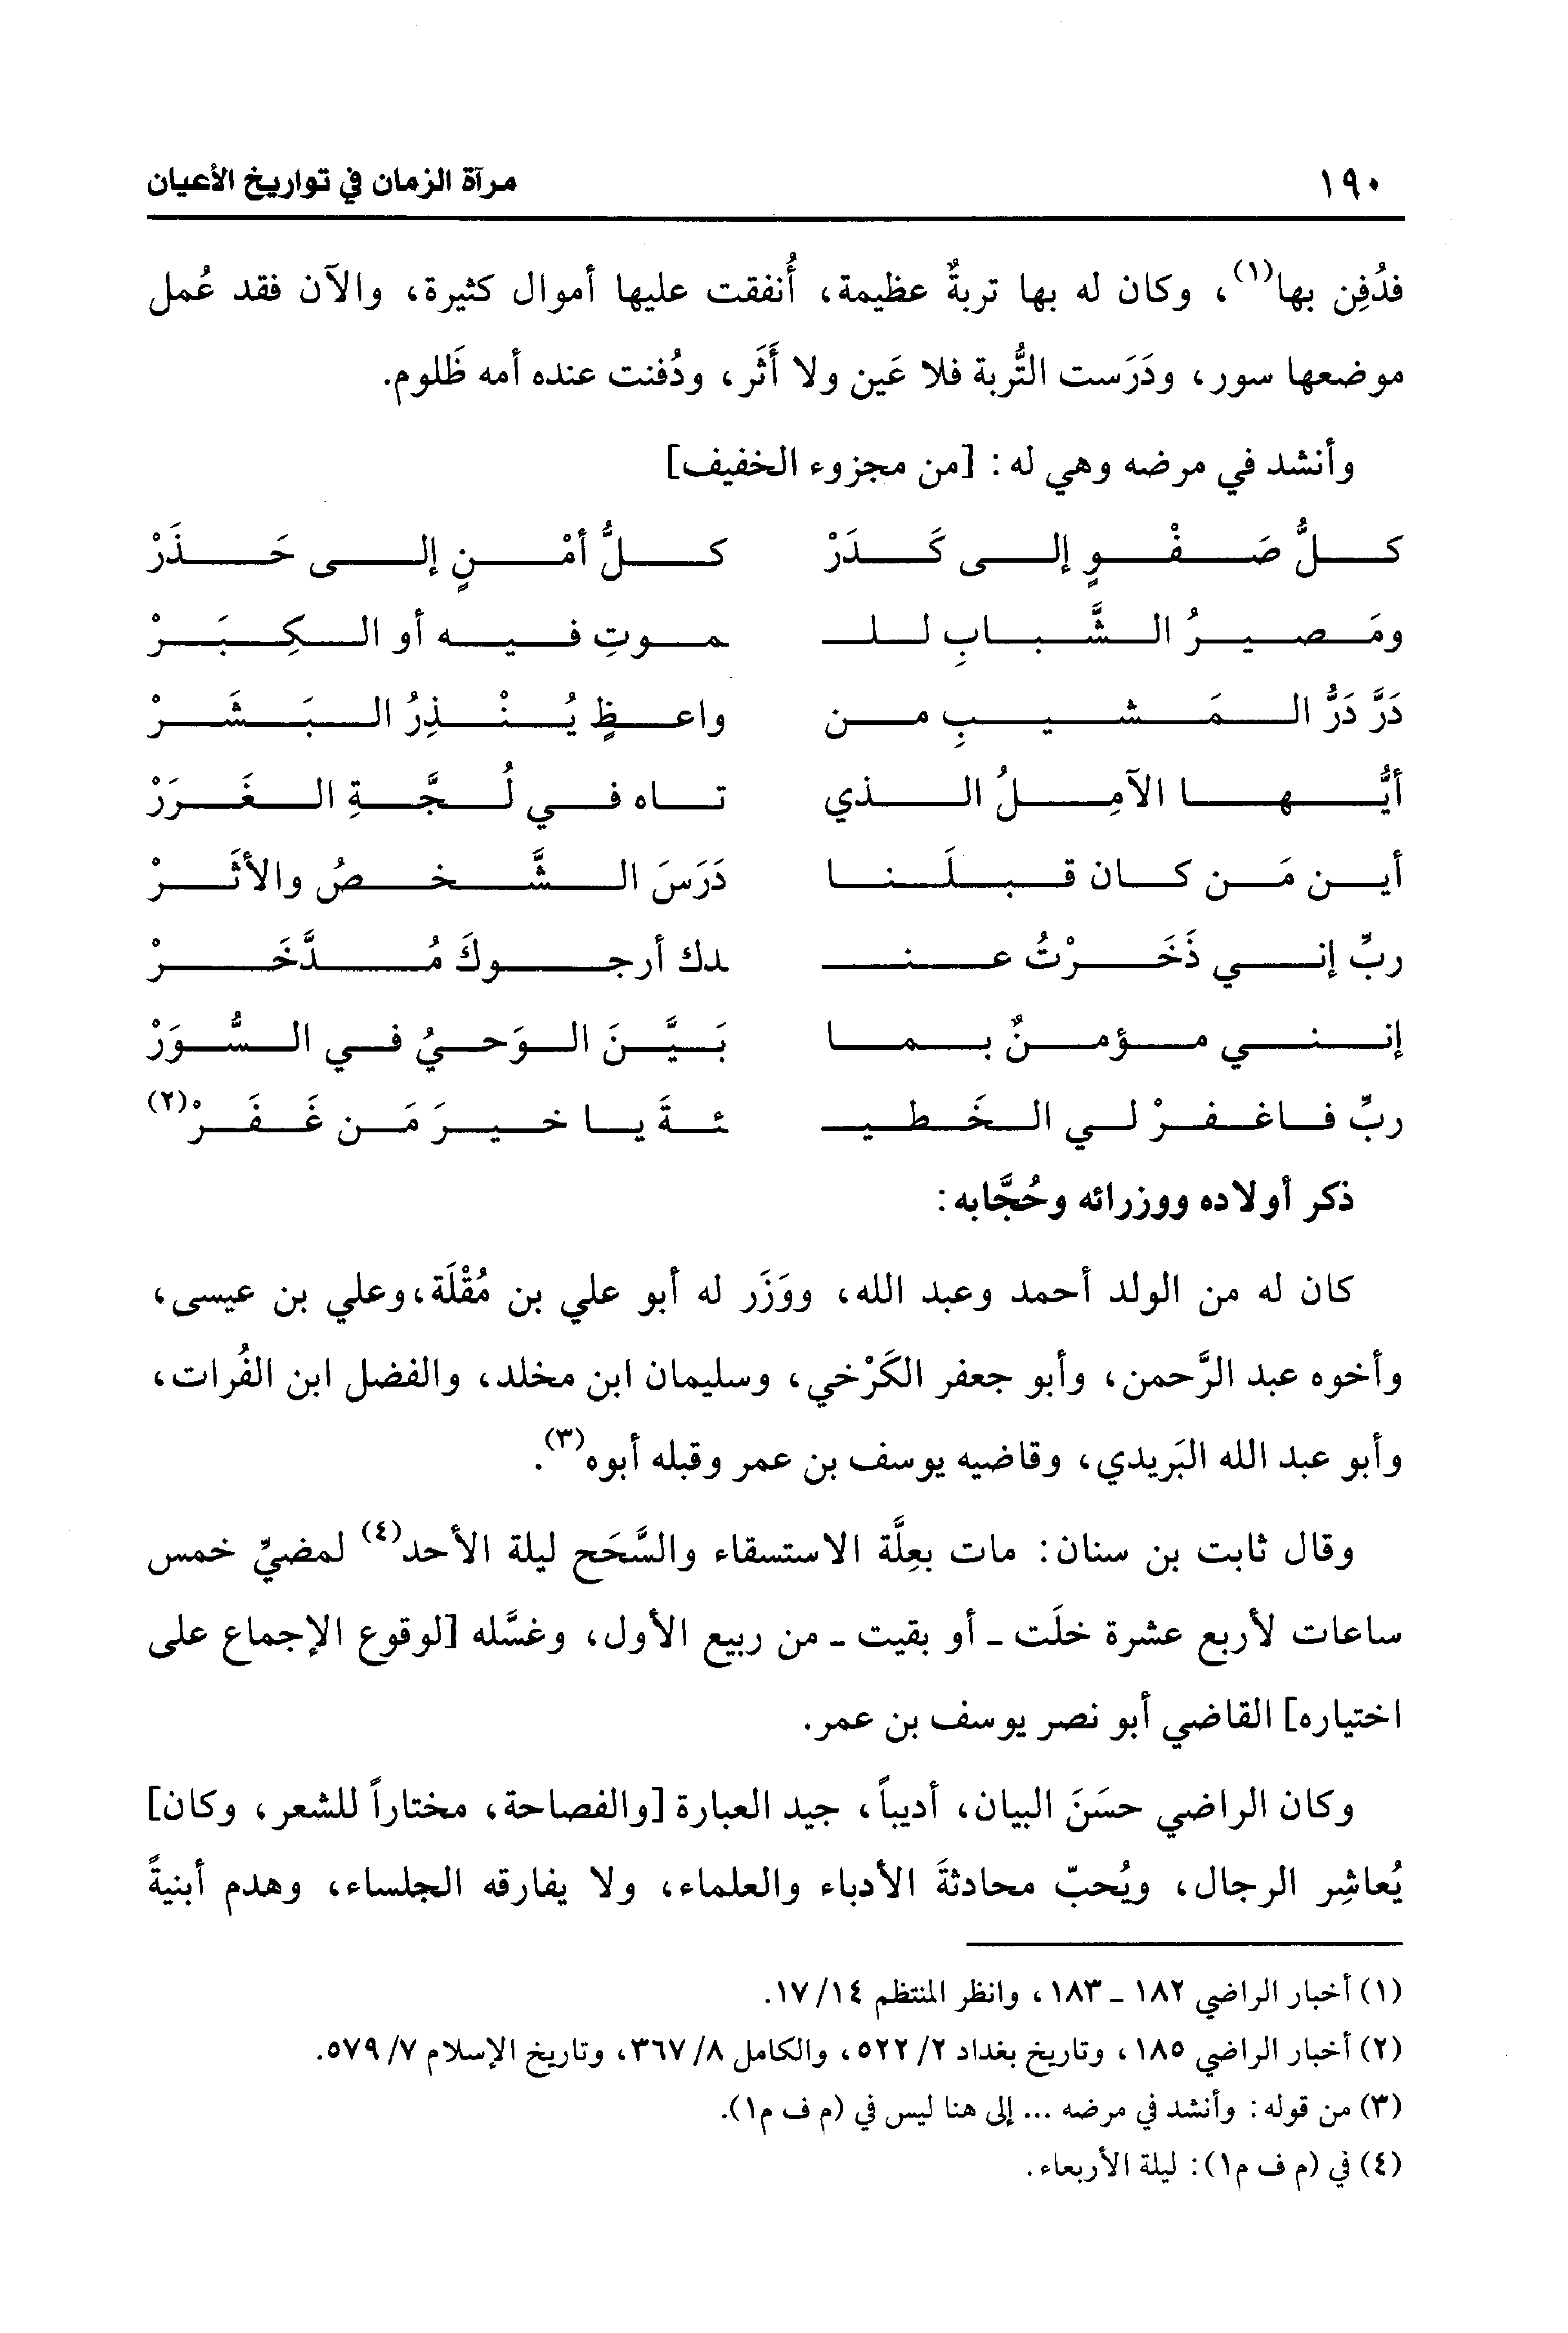 ١٩٠ مرآة الزمان في تواريخ الأعيان
فدُفِن بها(١)، وكان له بها تربةٌ عظيمة، أُنفقت عليها أموال كثيرة، والآن فقد عُمل
موضعها سور، ودَرَست التُّربة فلا عَين ولا أَثَر، ودُفنت عنده أمه ظَلوم.
وأنشد في مرضه وهي له: [من مجزوء الخفيف]
كلُّ صَفْوٍ إلى كَدَرْ كلُّ أمْنٍ إلى حَذَرْ
ومَصيرُ الشَّبابِ للـ ـموتِ فيه أو الكِبَرْ
دَرَّ دَرُّ المَشيبِ من واعظٍ يُنْذِرُ البَشَرْ
أيُّها الآمِلُ الذي تاه في لُجَّةِ الغَرَرْ
أين مَن كان قبلَنا دَرَسَ الشَّخصُ والأثَرْ
ربِّ إني ذَخَرْتُ عنـ ـدك أرجوكَ مُدَّخَرْ
إنني مؤمنٌ بما بَيَّنَ الوَحيُ في السُّوَرْ
ربِّ فاغفرْ لي الخَطيـ ـئةَ يا خيرَ مَن غَفَرْ(٢)
ذكر أولاده ووزرائه وحُجَّابه:
كان له من الولد أحمد وعبد الله، ووَزَر له أبو علي بن مُقْلَة،وعلي بن عيسى،
وأخوه عبد الرَّحمن، وأبو جعفر الكَرْخي، وسليمان ابن مخلد، والفضل ابن الفُرات،
وأبو عبد الله البَريدي، وقاضيه يوسف بن عمر وقبله أبوه(٣).
وقال ثابت بن سنان: مات بعِلَّة الاستسقاء والسَّحَح ليلة الأحد(٤) لمضيِّ خمس
ساعات لأربع عشرة خلَت ـ أو بقيت ـ من ربيع الأول، وغسَّله [لوقوع الإجماع على
اختياره] القاضي أبو نصر يوسف بن عمر.
وكان الراضي حسَنَ البيان، أديباً، جيد العبارة [والفصاحة، مختاراً للشعر، وكان]
يُعاشِر الرجال، ويُحبّ محادثةَ الأدباء والعلماء، ولا يفارقه الجلساء، وهدم أبنيةً
(١) أخبار الراضي ١٨٢ ـ ١٨٣، وانظر المنتظم ١٤/ ١٧.
(٢) أخبار الراضي ١٨٥، وتاريخ بغداد ٢/ ٥٢٢، والكامل ٨/ ٣٦٧، وتاريخ الإسلام ٧/ ٥٧٩.
(٣) من قوله: وأنشد في مرضه ... إلى هنا ليس في (م ف م١).
(٤) في (م ف م١): ليلة الأربعاء.